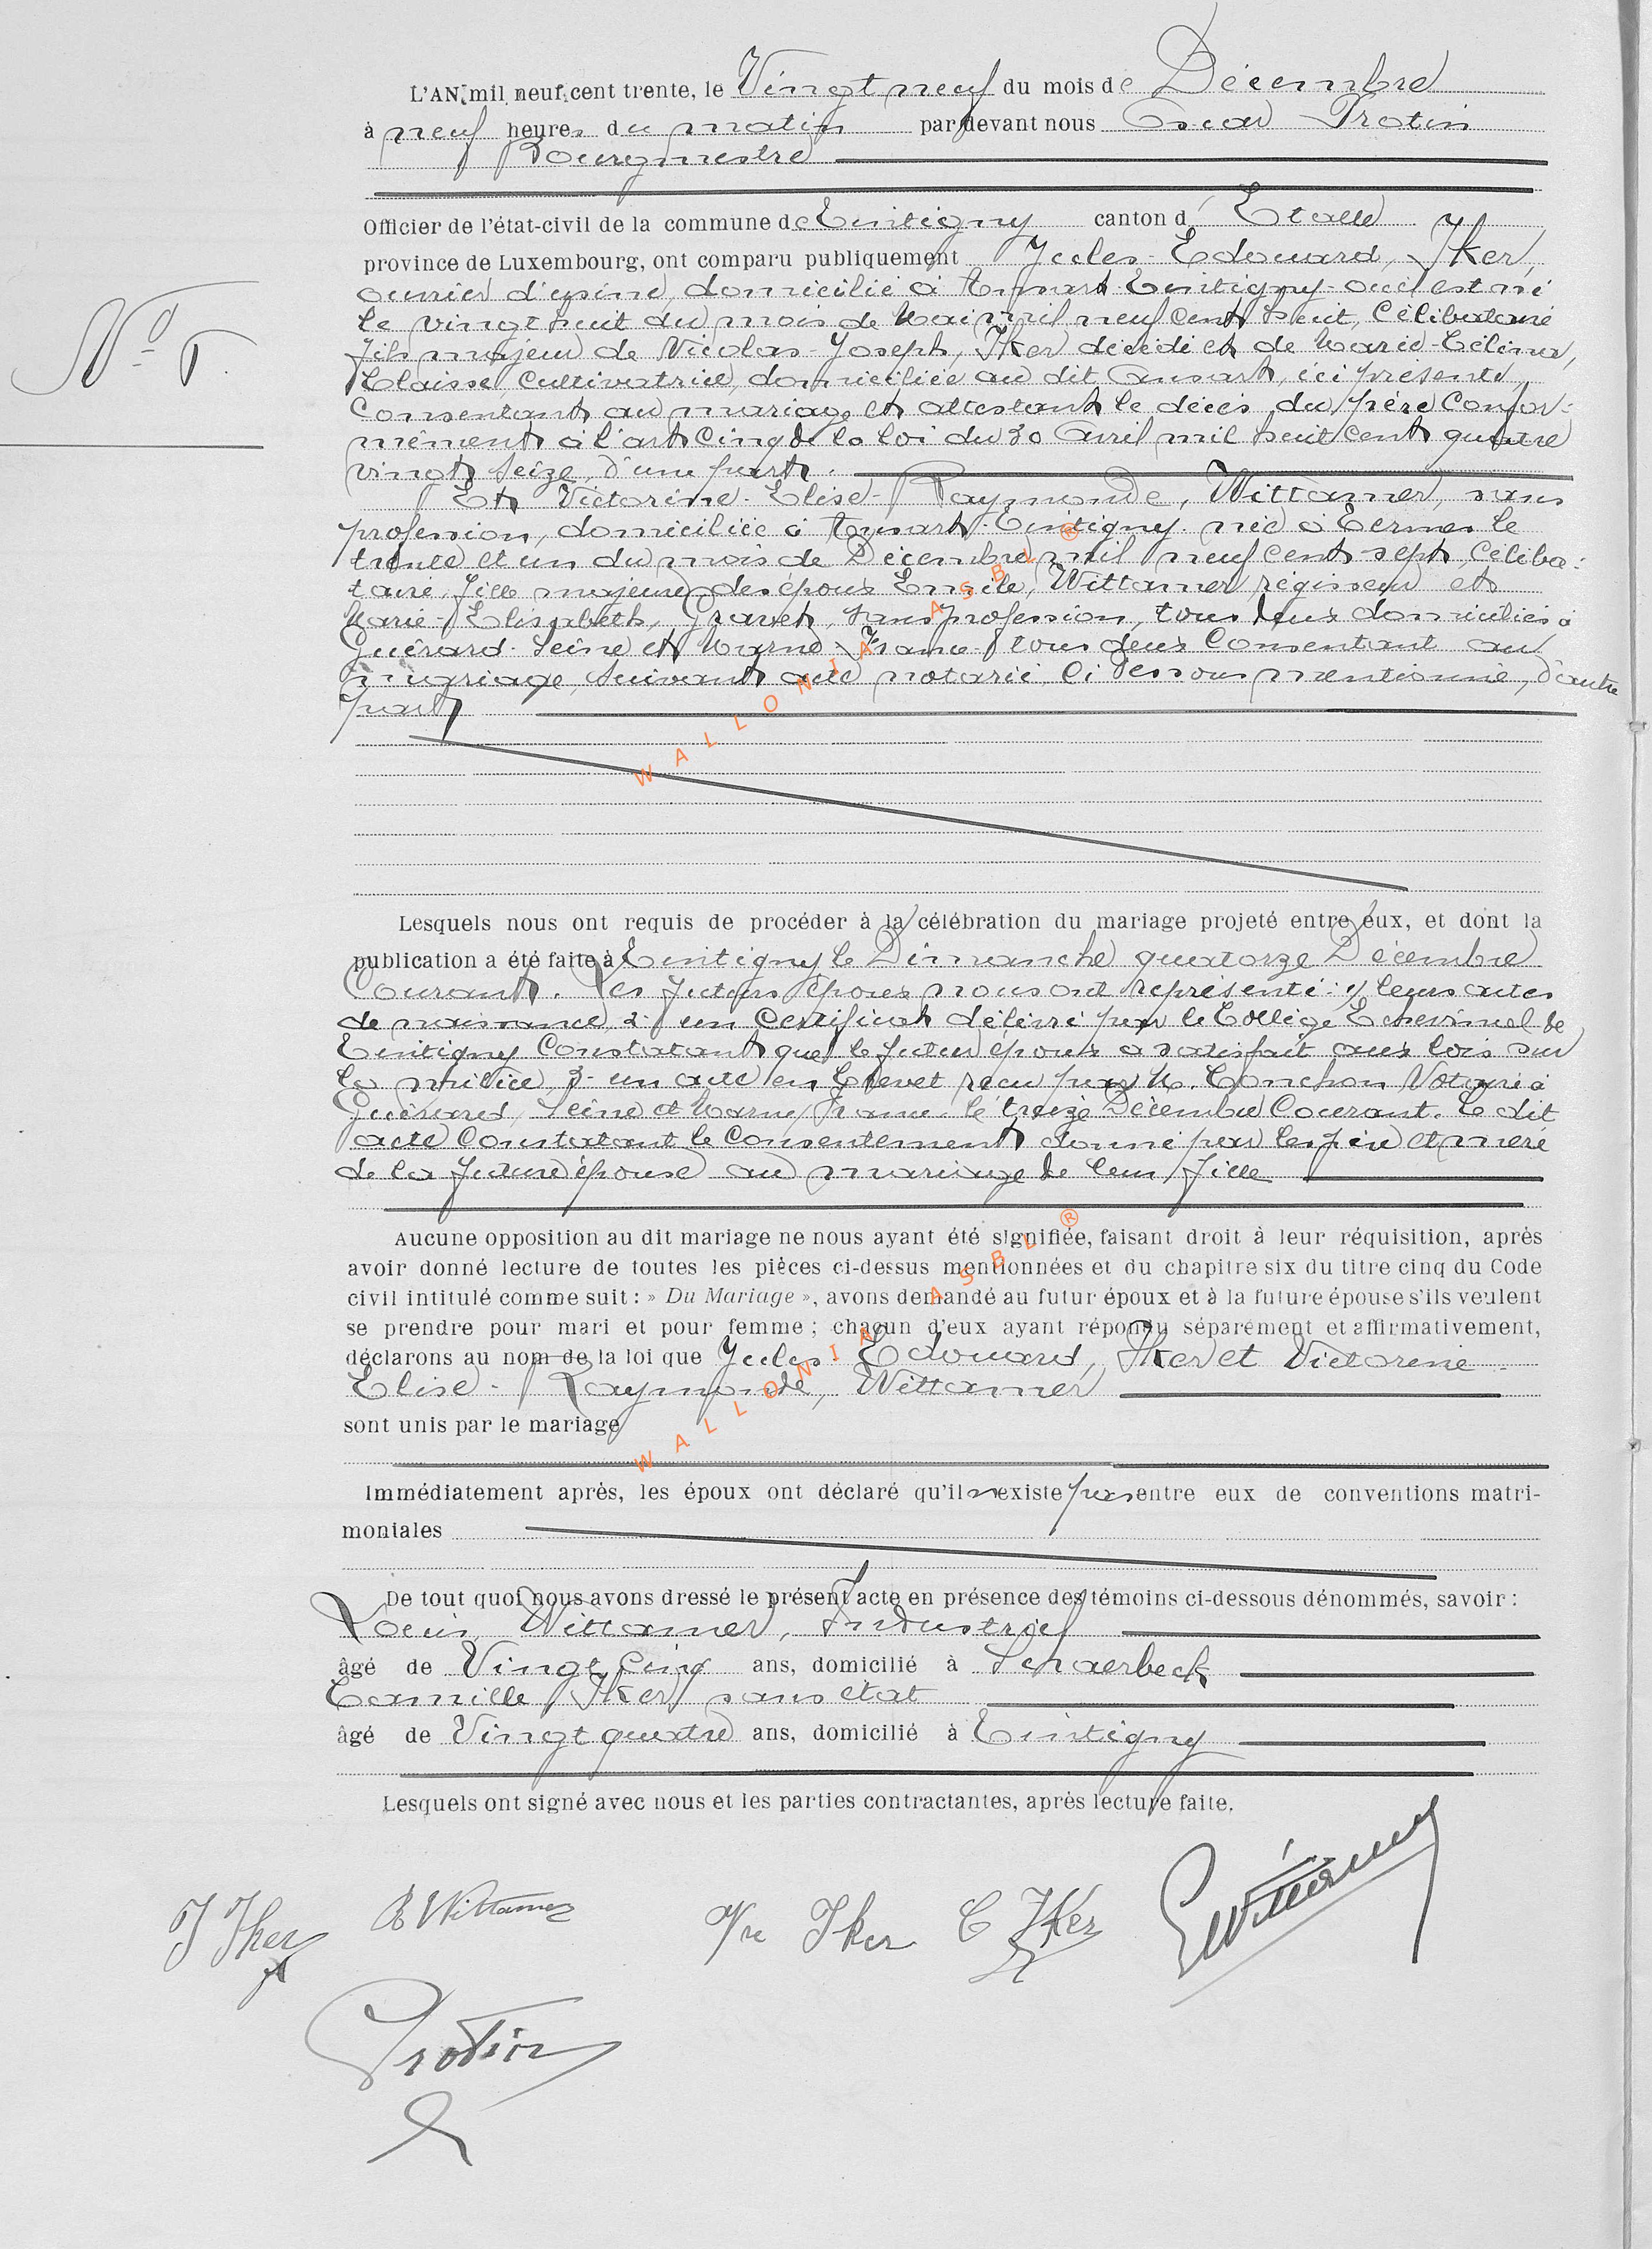 L'AN mil neuf cent trente, le Vingt neuf du mois de Décembre
à neuf heures du matin par devant nous Oscar Protin
Bourgmestre
Officier de l'état-civil de la commune de Tintigny canton d' Etalle
province de Luxembourg, ont comparu publiquement Jules-Edouard, Iker,
ouvrier d'usine, domicilié à Ansart-Tintigny où il est né
le vingt huit du mois de Mai mil neuf cent huit, Célibataire
fils majeur de Nicolas-Joseph, Iker décédé et de Marie-Célina,
Claisse, Cultivatrice, domiciliée au dit Ansart, ici présente,
Consentant au mariage et attestant le décès du père Confor-
mément à l'art Cinq de la loi du 30 Avril mil huit cent quatre
vingt seize, d'une part.
Et Victorine-Elise-Raymonde, Wittamer, sans
profession, domiciliée à Ansart-Tintigny née à Termes le
trente et un du mois de Décembre mil neuf cent sept, Céliba-
taire, fille majeure des époux Emile, Wittamer régisseur et
Marie-Elisabeth, Gravet, sans profession, tous deux domiciliés à
Guérard-Seine et Marne France tous deux Consentant au
mariage, Suivant acte notarié Ci dessous mentionné, d'autre
part
Lesquels nous ont requis de procéder à la célébration du mariage projeté entre eux, et dont la
publication a été faite à Tintigny le Dimanche quatorze Décembre
Courant. Les futurs époux nous ont représenté: 1/ leurs actes
de naissance, 2- un Certificat délivré par le Collège Echevinal de
Tintigny Constatant que le futur époux a satisfait aux lois sur
la milice, 3- un acte en brevet reçu par M. Conchon Notaire à
Guérard, Seine et Marne, France le treize Décembre Courant. Le dit
acte Constatant le Consentement donné par les père et mère
de la future épouse au mariage de leur fille
Aucune opposition au dit mariage ne nous ayant été signifiée, faisant droit à leur réquisition, après
avoir donné lecture de toutes les pièces ci-dessus mentionnées et du chapitre six du titre cinq du Code
civil intitulé comme suit : » Du Mariage », avons demandé au futur époux et à la future épouse s'ils veulent
se prendre pour mari et pour femme ; chacun d'eux ayant répondu séparément et affirmativement,
déclarons au nom de la loi que Jules-Edouard, Iker et Victorine-
Elise-Raymonde, Wittamer
sont unis par le mariage
Immédiatement après, les époux ont déclaré qu'il n'existe pas entre eux de conventions matri-
moniales
De tout quoi nous avons dressé le présent acte en présence des témoins ci-dessous dénommés, savoir :
Louis, Wittamer, Industriel
âgé de Vingt Cinq ans, domicilié à Schaerbeek
Camille, Iker, sans état
âgé de Vingt quatre ans, domicilié à Tintigny
Lesquels ont signé avec nous et les parties contractantes, après lecture faite.
J Iker R Wittamer Vve Iker C Iker Wittamer
Protin
WALLONIA ASBL ®
WALLONIA ASBL ®